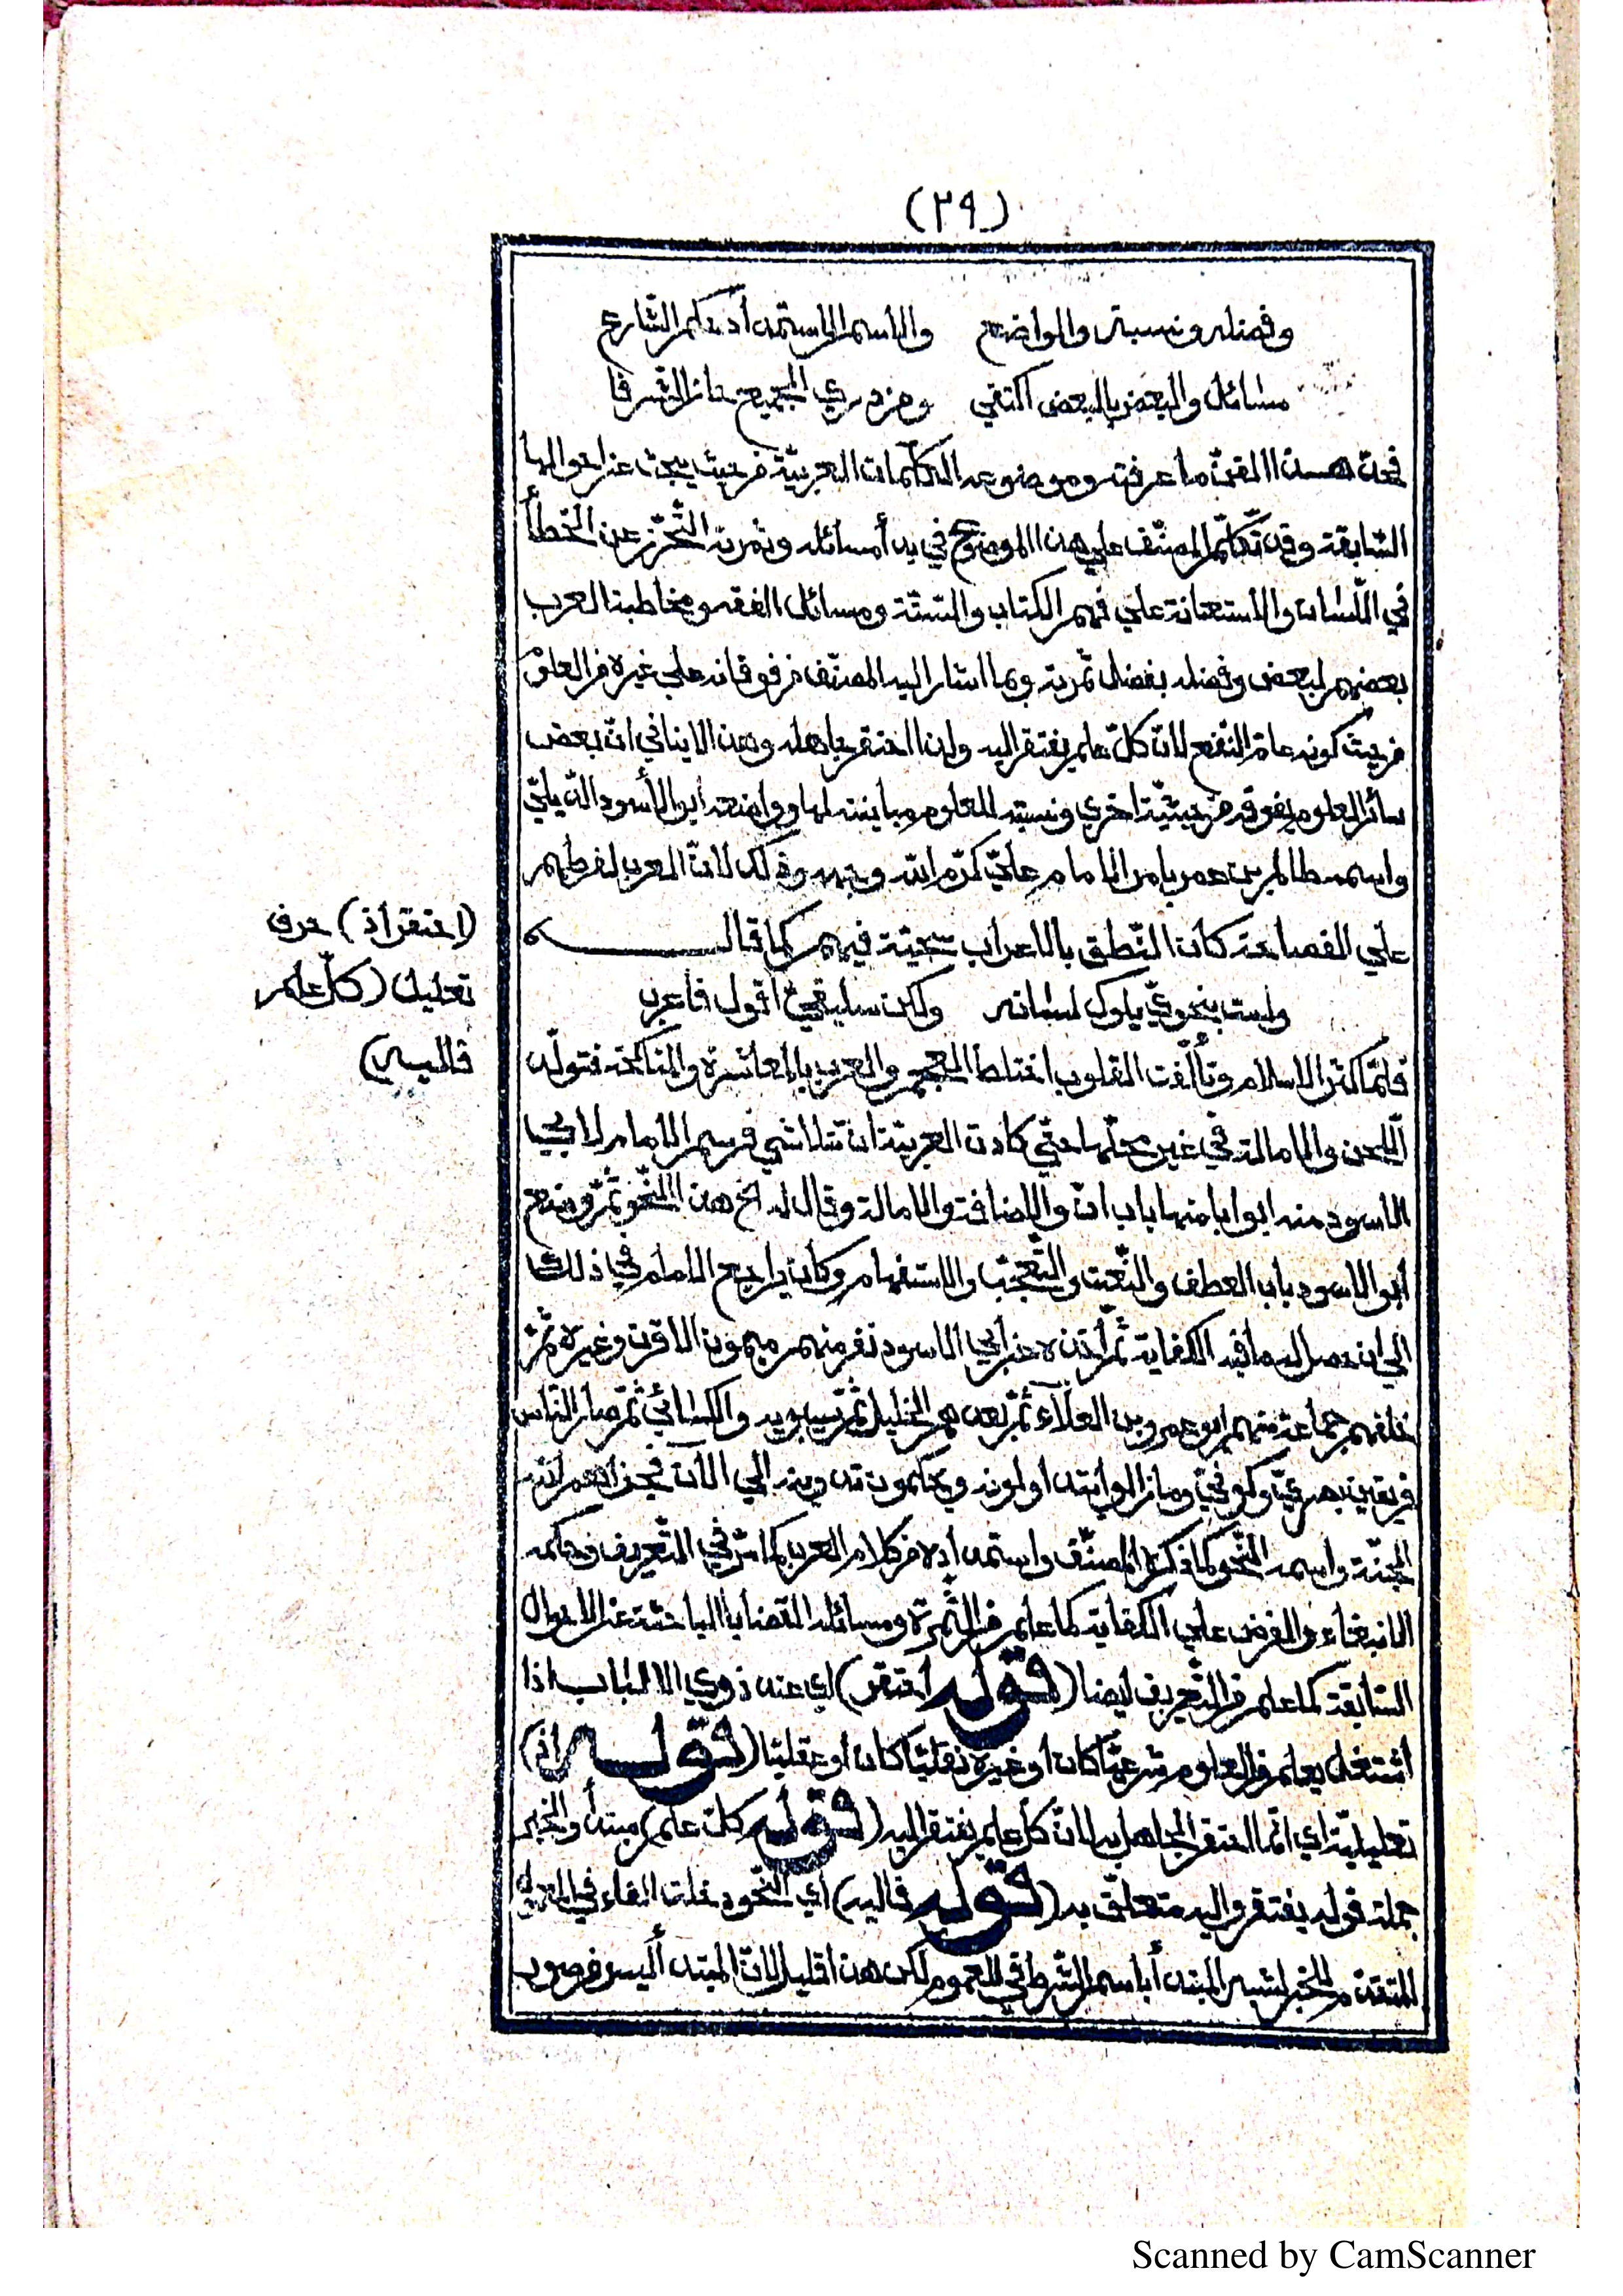 (٢٩)
وفضله ونسبته والواضع والاسم الاستمداد حكم الشارع
مسائل والبعض بالبعض اكتفى ومن درى الجميع حاز الشرفا
فحدّ هذا الفنّ ما عرفته وموضوعه الكلمات العربيّة من حيث يبحث عن احوالها
السّابقة وقد تكلّم المصنّف على هذا الموضوع في بدأ مسائله وثمرته التّحرّز عن الخطأ
في اللّسان والاستعانة على فهم الكتاب والسّنّة ومسائل الفقه ومخاطبة العرب
بعضهم لبعض وفضله بفضل ثمرته وبما اشار اليه المصنّف من فوقانه على غيره من العلوم
من حيث كونه عامّ النّفع لانّ كلّ علم يفتقر اليه ولذا احتقر جاهله وهذا لا ينافي انّ بعض
سائر العلوم يفوقه من حيثيّة اخرى ونسبته للعلوم مباينته لها وواضعه ابو الأسود الدّيليّ
واسمه ظالم بن عمر بامر الامام عليّ كرّم الله وجهه وذلك لانّ العرب لفرطهم
على الفصاحة كان النّطق بالاعراب سجيّة فيهم كما قال
ولست بنحويّ يلوك لسانه ولكن سليقيّ اقول فاعرب
فلمّا كثر الاسلام وتألّفت القلوب اختلط العجم والعرب بالمعاشرة والمناكحة فتولّد
اللّحن والامالة في غير محلّها حتّى كادت العربيّة ان تتلاشى فرسم الامام لابي
الاسود منه ابوابا منها باب انّ والاضافة والامالة وقال له انح هذا النّحو ثمّ وضع
أبو الاسود باب العطف والنّعت والتّعجّب والاستفهام وكان يراجع الامام في ذلك
الى ان حصل له ما فيه الكفاية ثمّ أخذه عن أبي الاسود نفر منهم ميمون الاقرن وغيره ثمّ
خلفهم جماعة منهم ابو عمرو بن العلآء ثمّ بعدهم الخليل ثمّ سيبويه والكسائيّ ثمّ صار النّاس
فريقين بصريّ وكوفيّ وما زالوا يتداولونه ويحكمون تدوينه الى الآن فجزاهم الله
الجنّة واسمه النّحو كما ذكره المصنّف واستمداده من كلام العرب كما مرّ في التّعريف وحكمه
الانبغاء والفرض على الكفاية كما علم من الثّمرة ومسائله القضايا الباحثة عن الاحوال
السّابقة كما علم من التّعريف ايضا (قوله احتقر) اي عند ذوي الالباب اذا
اشتغل بعلم من العلوم شرعيّا كان أو غيره نقليّا كان أو عقليّا (قوله اذ)
تعليليّة اي انّما احتقر الجاهل به لانّ كلّ علم يفتقر اليه (قوله كلّ علم) مبتدأ والخبر
جملة قوله يفتقر واليه متعلّق به (قوله فاليه) اي النّحو دخلت الفاء في المعمول
المتقدّم للخبر لشبه المبتدأ باسم الشّرط في العموم لكن هذا قليل لانّ المبتدأ ليس من صور
(احتقر اذ) حرف
تعليل (كلّ علم
فاليه)
Scanned by CamScanner